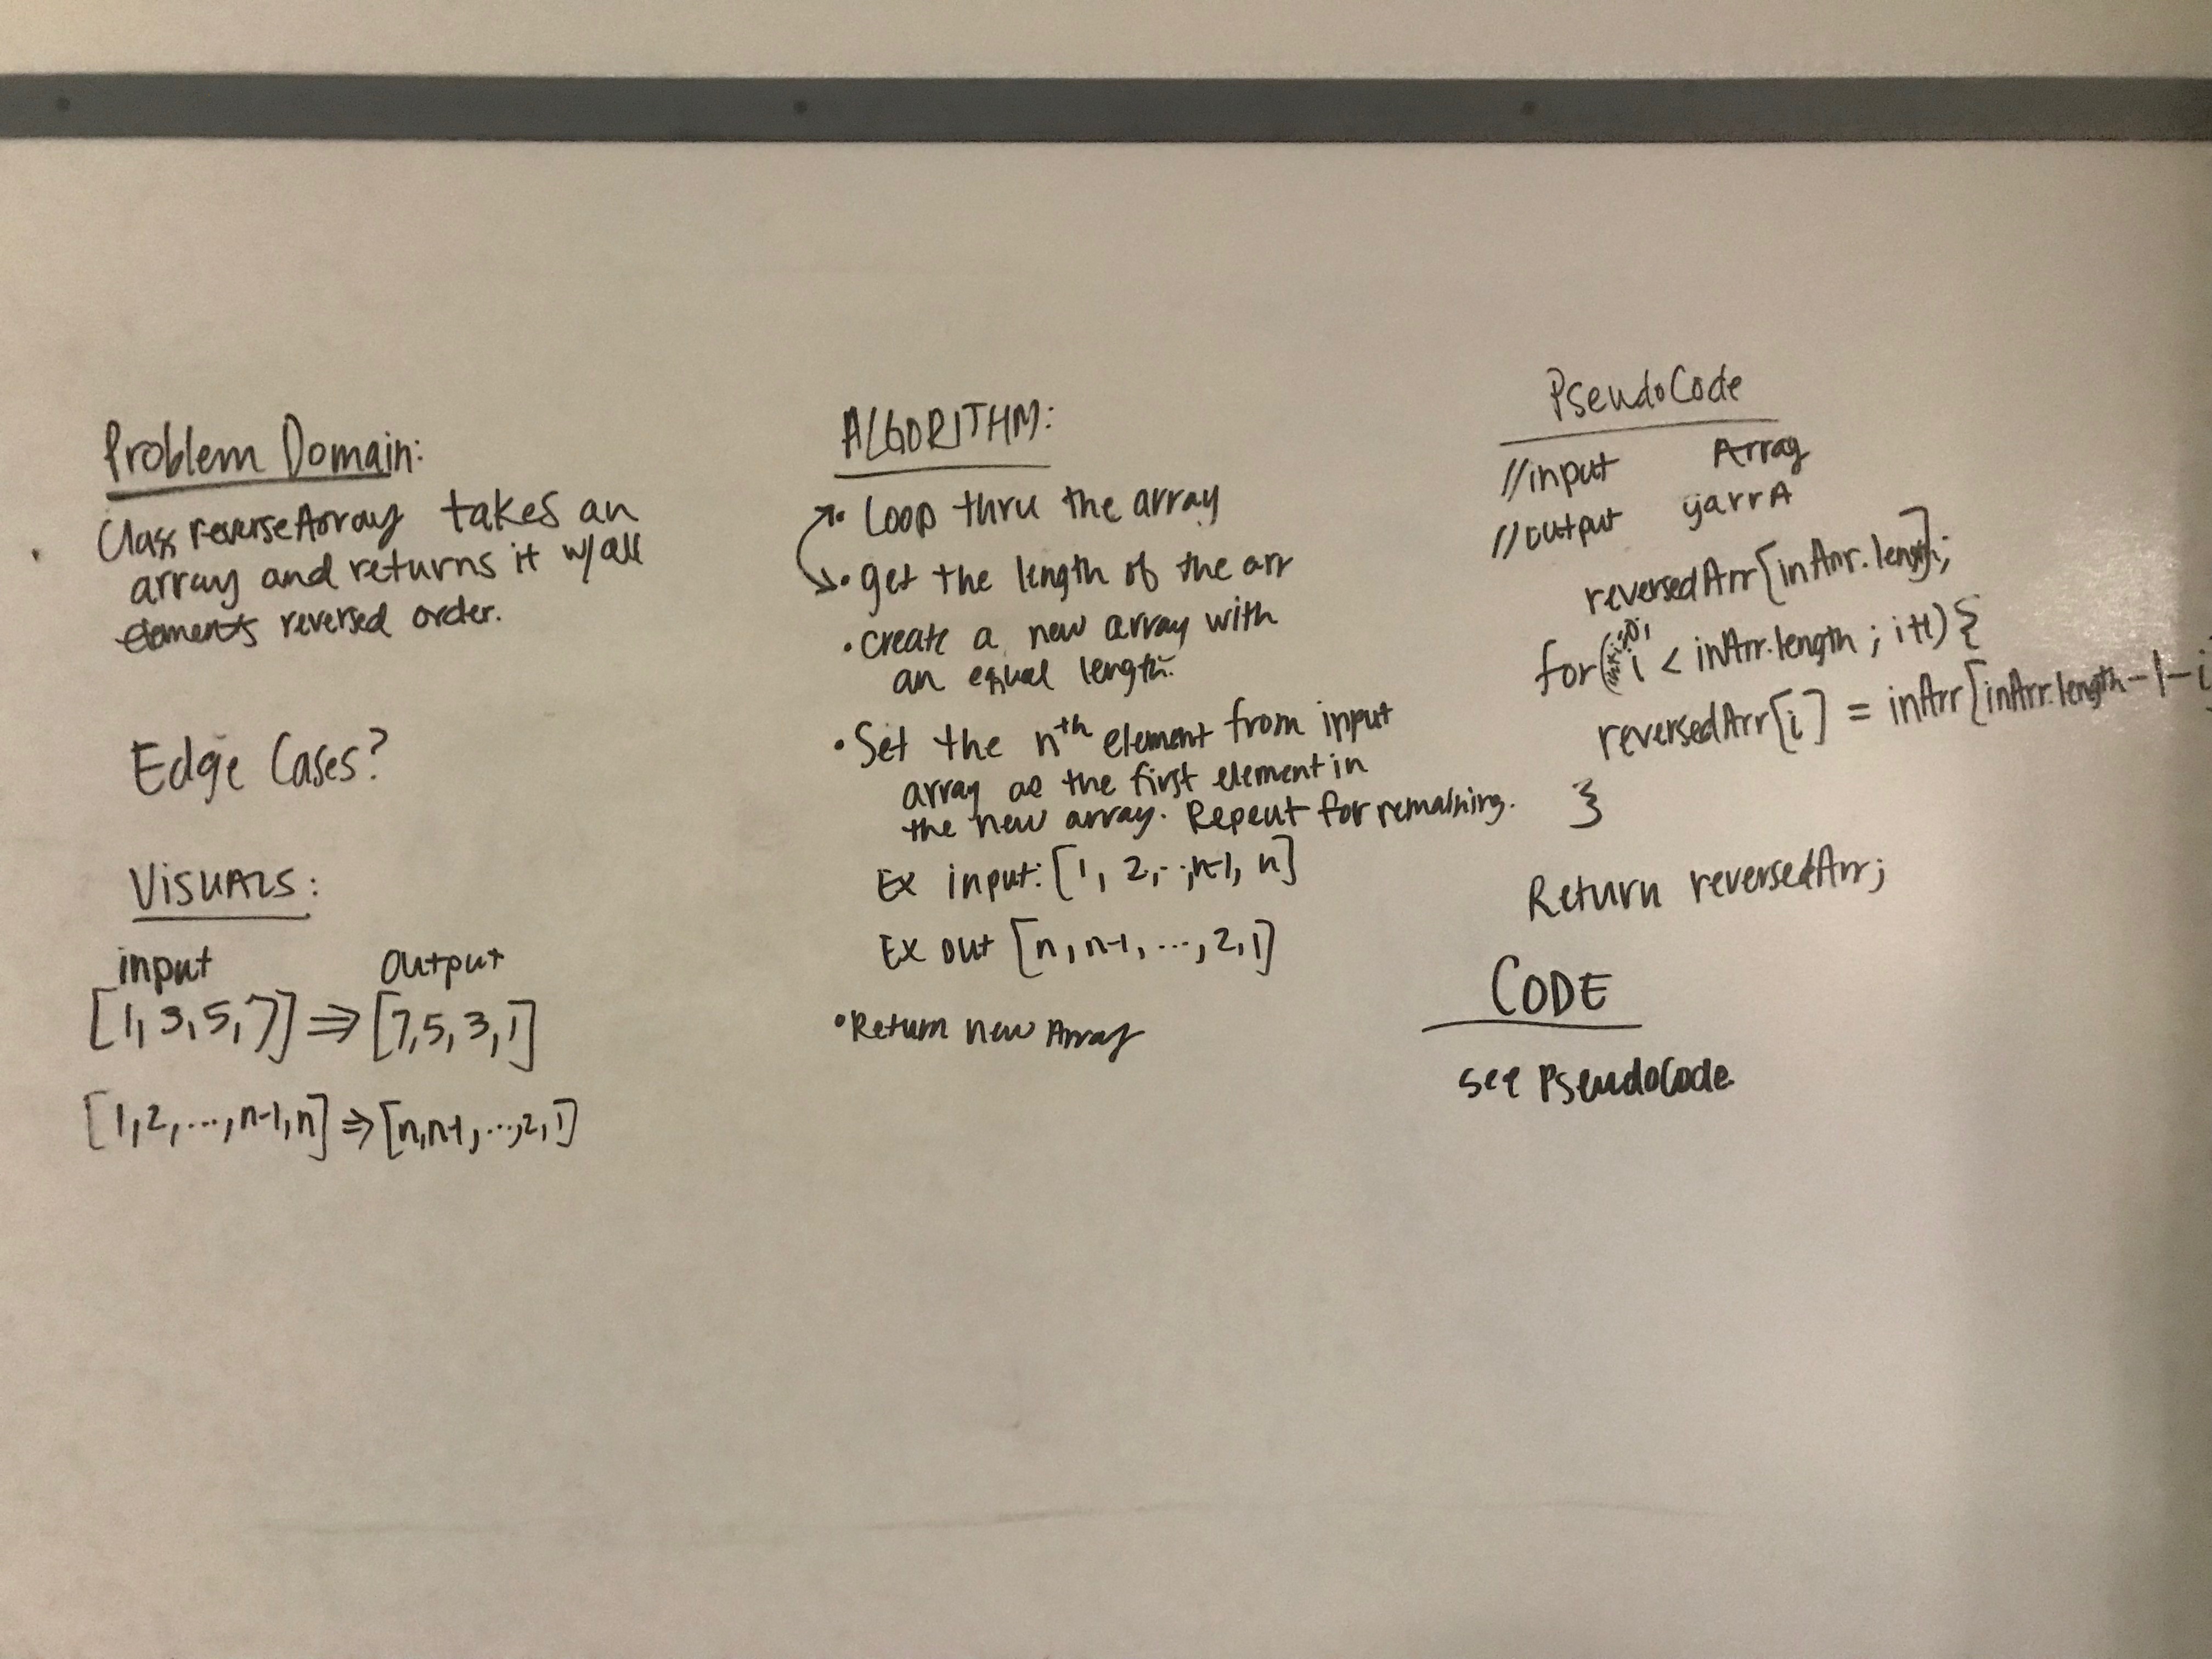 Problem Domain:
Class reverseArray takes an
array and returns it w/all
elements reversed order.
Edge Cases?
Visuals:
input output
[1, 3, 5, 7] ⇒ [7, 5, 3, 1]
[1, 2, ..., n-1, n] ⇒ [n, n-1, ..., 2, 1]
ALGORITHM:
• Loop thru the array
• get the length of the arr
• create a new array with
an equal length.
• Set the nth element from input
array as the first element in
the new array. Repeat for remaining.
Ex input: [1, 2, .., n-1, n]
Ex out [n, n-1, ..., 2, 1]
• Return new Array
PseudoCode
//input Array
//output yarrA
reversedArr[inArr.length];
for(i=0; i < inArr.length; i++) {
reversedArr[i] = inArr[inArr.length-1-i]
}
Return reversedArr;
CODE
see PseudoCode